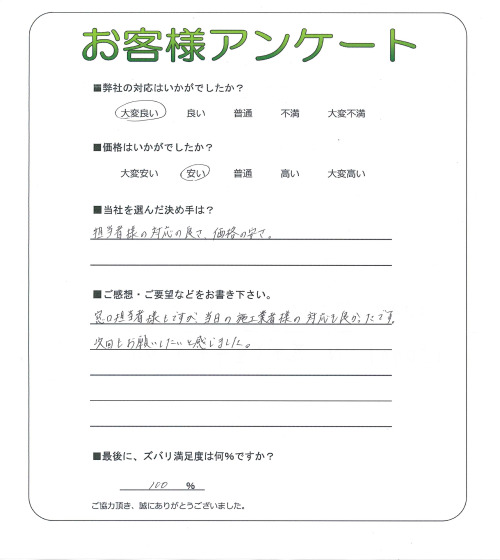 お客様アンケート
■弊社の対応はいかがでしたか？
大変良い 良い 普通 不満 大変不満
■価格はいかがでしたか？
大変安い 安い 普通 高い 大変高い
■当社を選んだ決め手は？
担当者様の対応の良さ、価格の安さ。
■ご感想・ご要望などをお書き下さい。
窓口担当者様もですが、当日の施工業者様の対応も良かったです。
次回もお願いしたいと感じました。
■最後に、ズバリ満足度は何%ですか？
100 %
ご協力頂き、誠にありがとうございました。